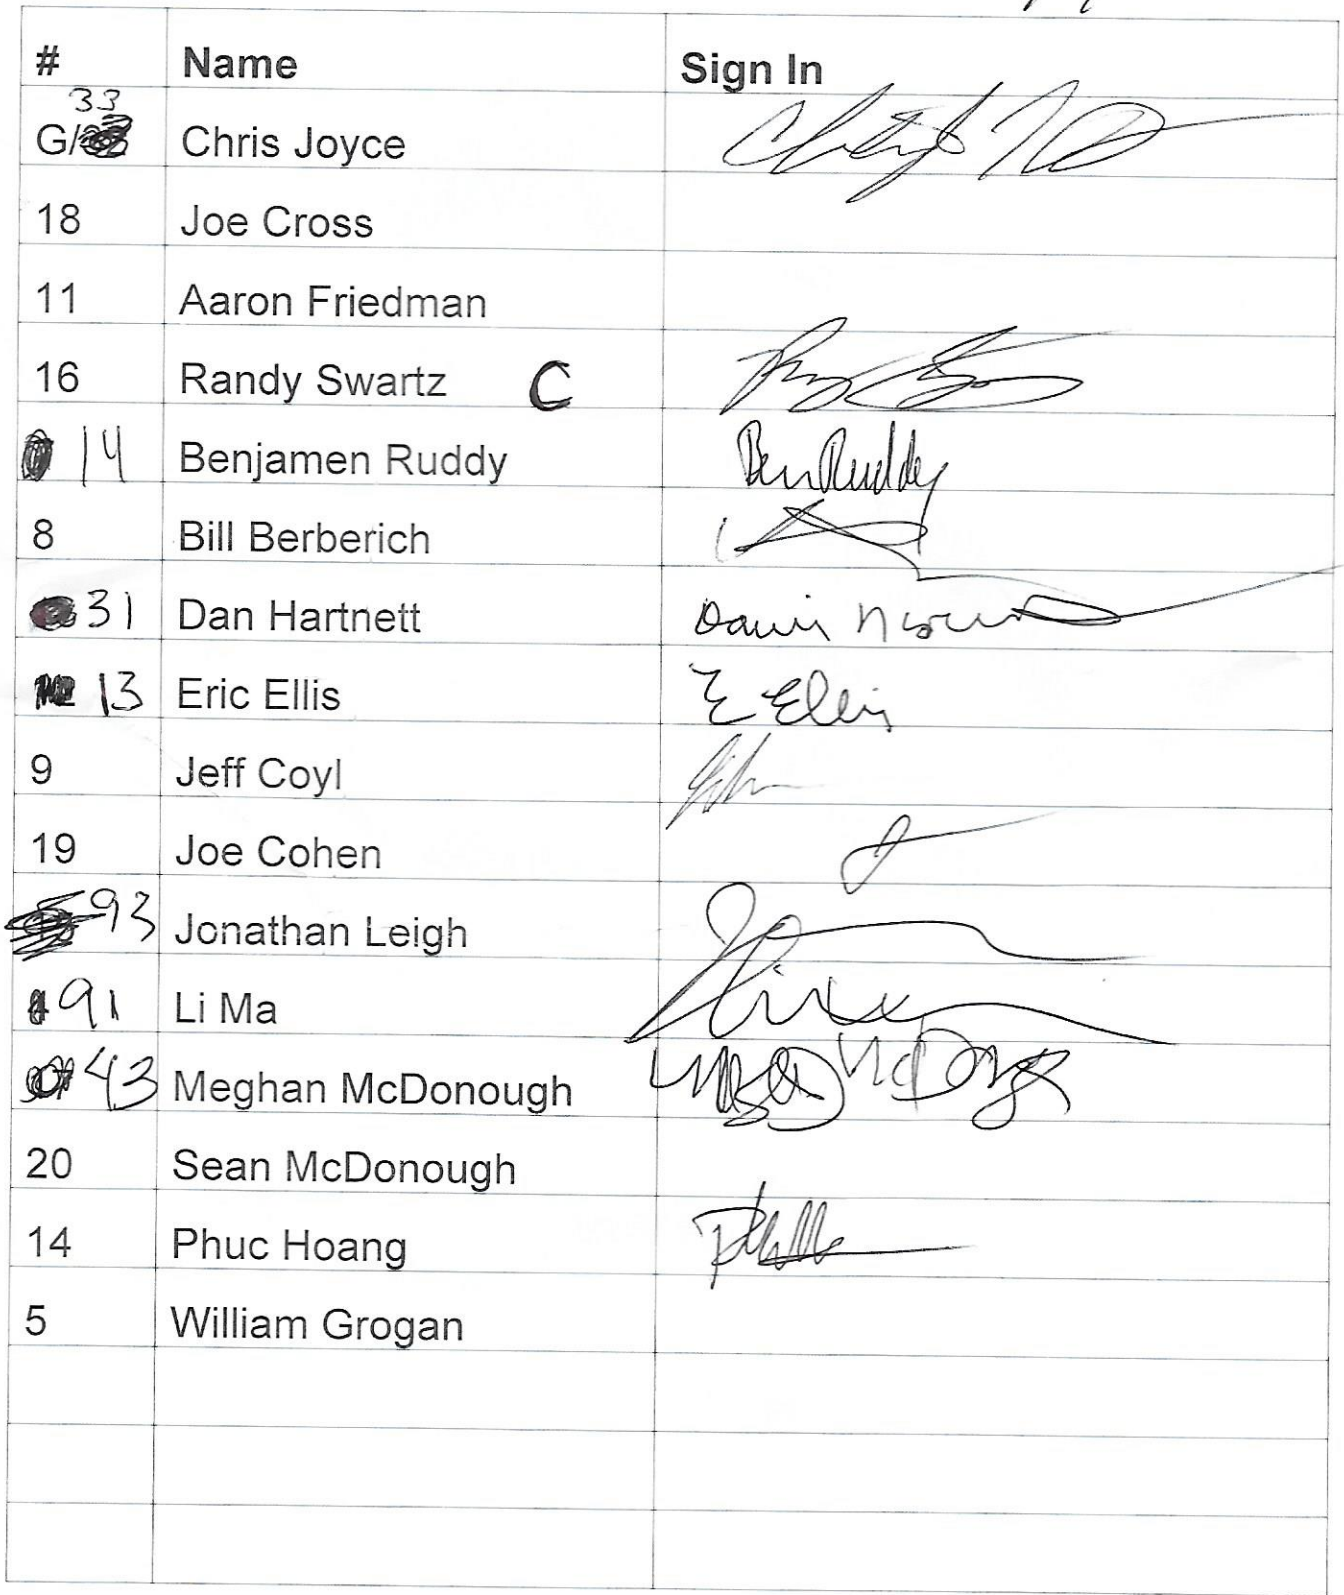 # Name Sign In
33
G/ Chris Joyce
18 Joe Cross
11 Aaron Friedman
16 Randy Swartz C
14 Benjamen Ruddy Ben Ruddy
8 Bill Berberich
31 Dan Hartnett
13 Eric Ellis E Ellis
9 Jeff Coyl
19 Joe Cohen
93 Jonathan Leigh
91 Li Ma
43 Meghan McDonough
20 Sean McDonough
14 Phuc Hoang
5 William Grogan